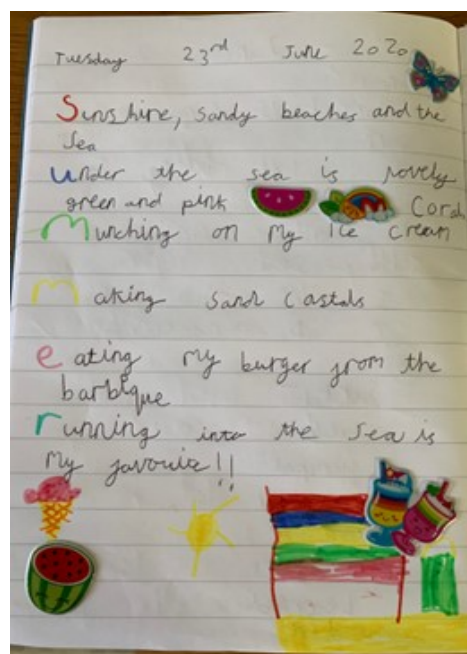 Tuesday 23rd June 2020
Sunshine, Sandy beaches and the
Sea
under the sea is lovely
green and pink Coral
Munching on my Ice Cream
making Sand Castals
eating my burger from the
barbique
running into the Sea is
My favourie!!